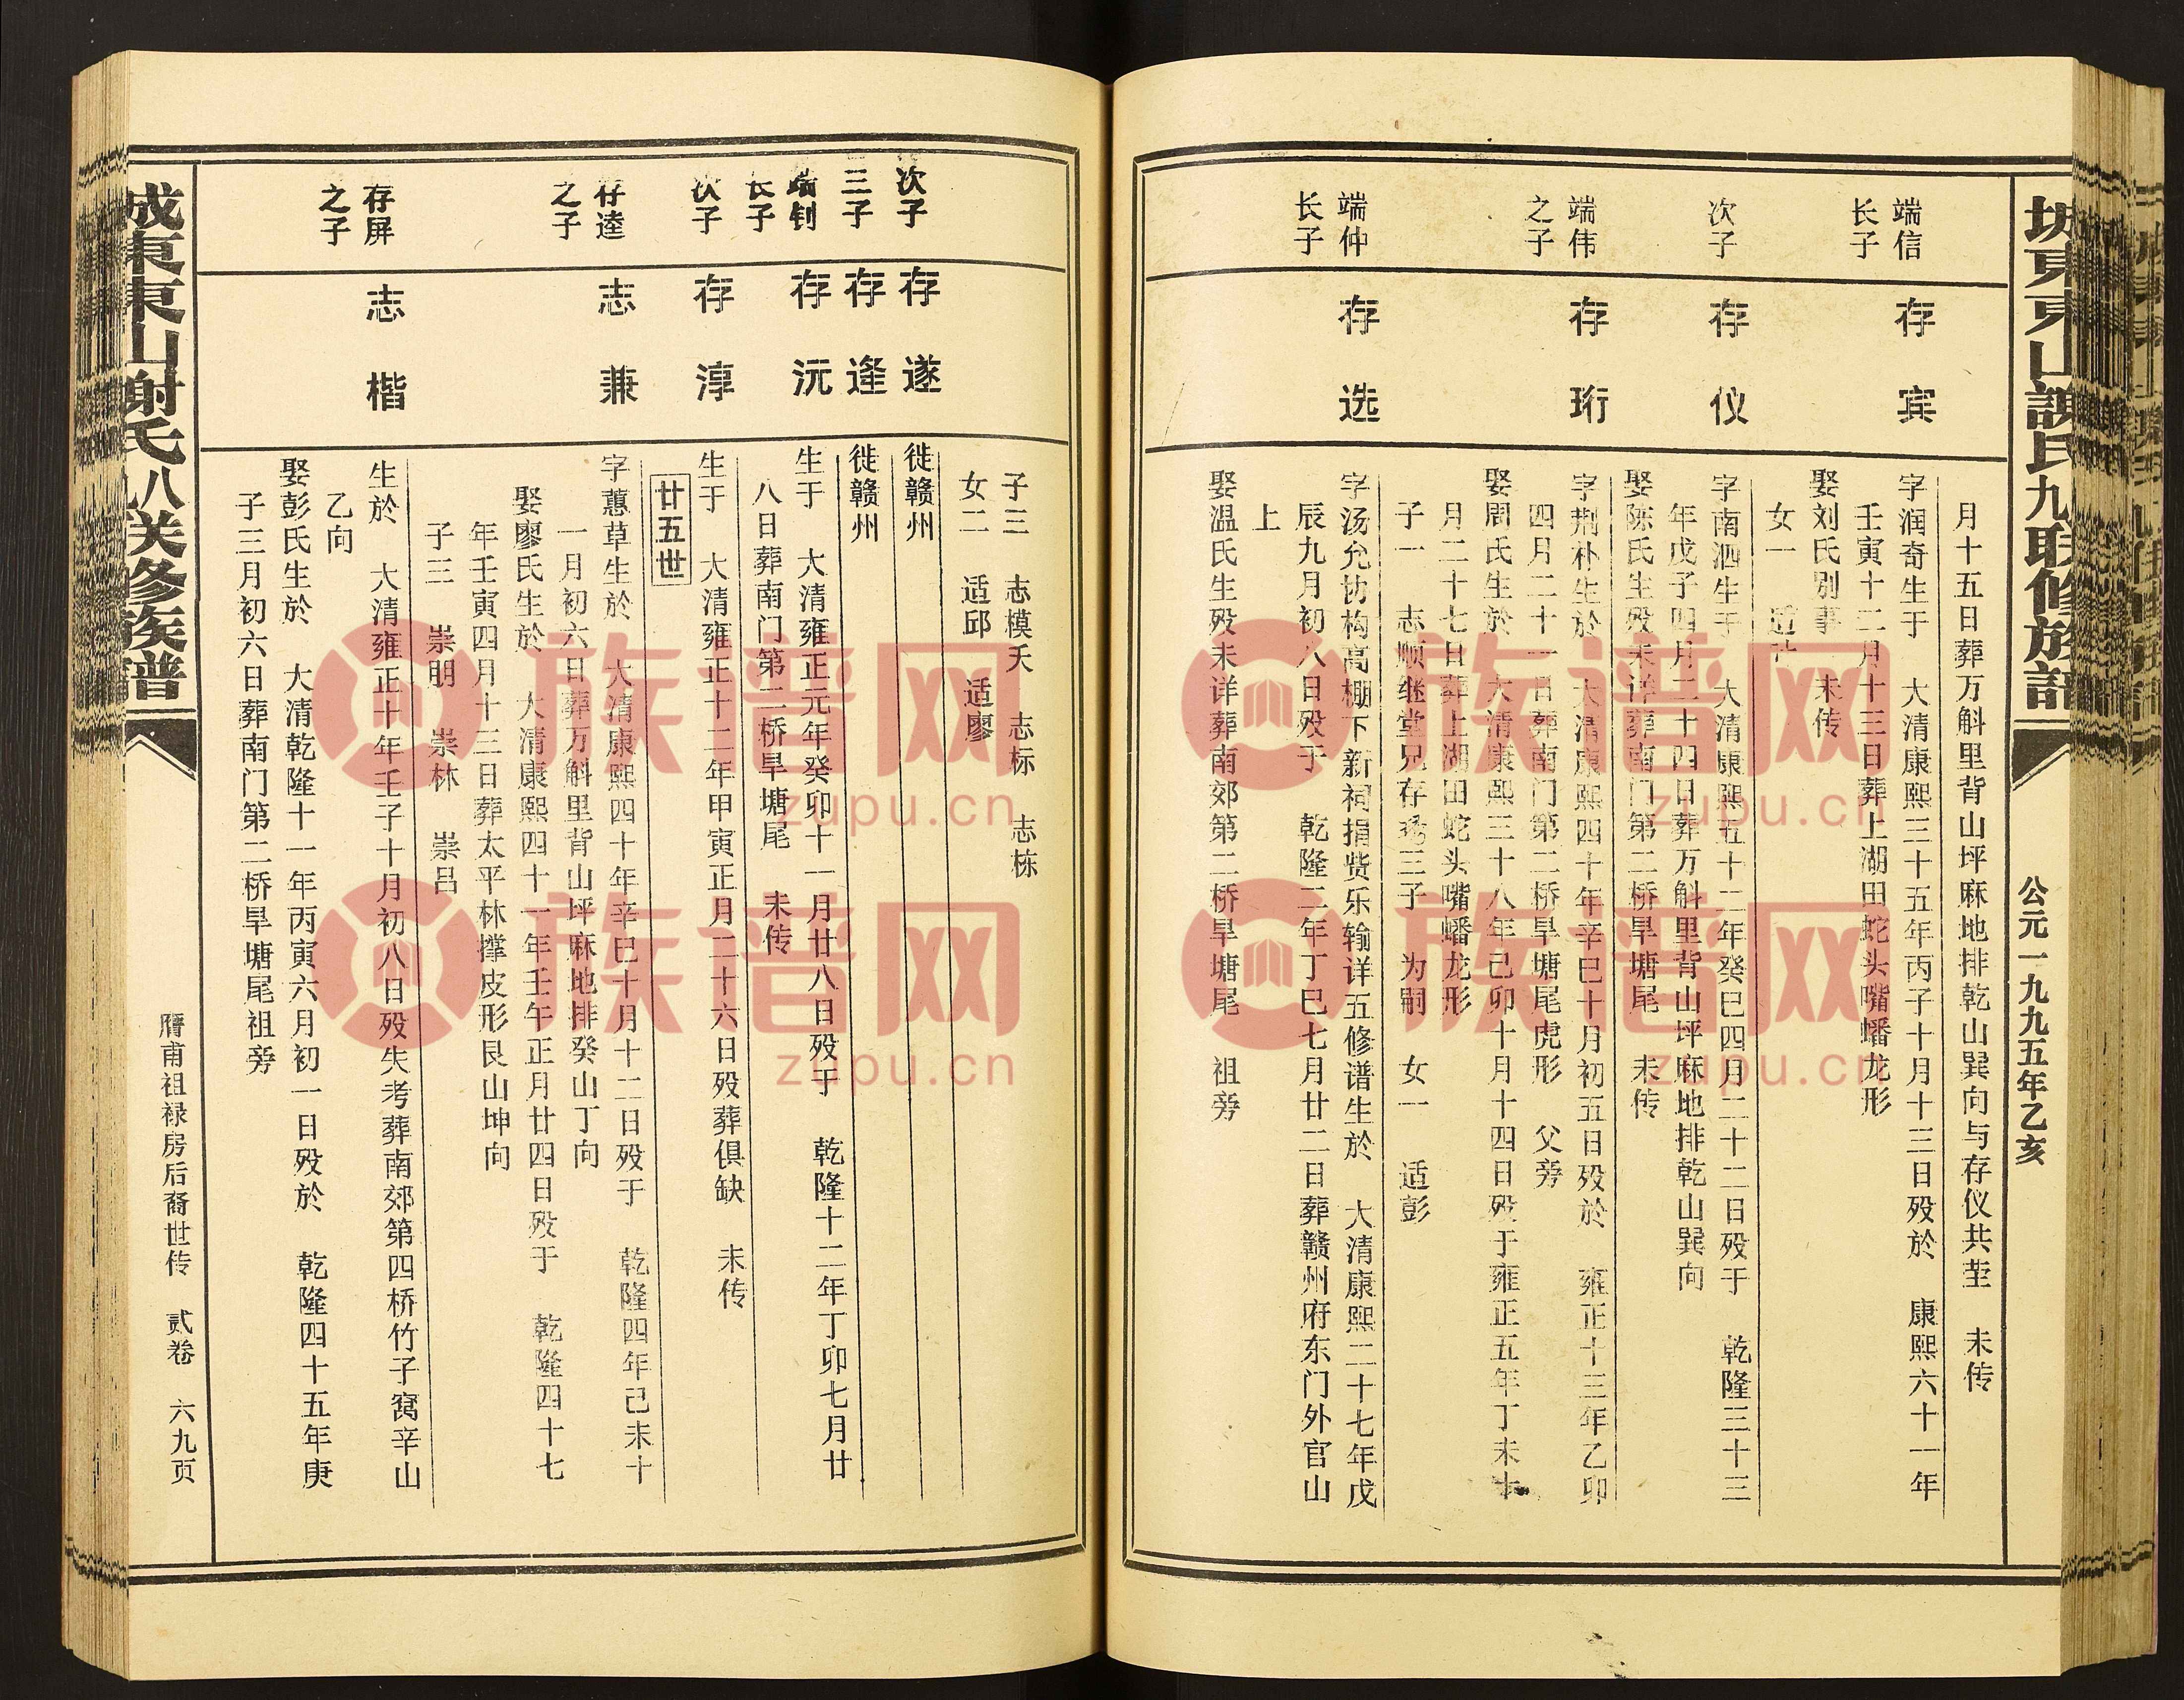 公元一九九五年乙亥
月十五日葬万斛里背山坪麻地排乾山巽向与存仪共茔 未传
端信
长子
存宾
字润奇生于 大清康熙三十五年丙子十月十三日殁於 康熙六十一年
壬寅十二月十三日葬上湖田蛇头嘴蟠龙形
娶刘氏别事 未传
女一
次子
存仪
字南泗生于 大清康熙五十二年癸巳四月二十二日殁于 乾隆三十三
年戊子四月二十四日葬万斛里背山坪麻地排乾山巽向
娶陈氏生殁未详葬南门第二桥旱塘尾 未传
端伟
之子
存珩
字荆朴生於 大清康熙四十年辛巳十月初五日殁於 雍正十三年乙卯
四月二十一日葬南门第二桥旱塘尾虎形 父旁
娶周氏生於 大清康熙三十八年己卯十月十四日殁于雍正五年丁未
月二十七日葬上湖田蛇头嘴蟠龙形
子一 志顺继堂兄存 三子 为嗣 女一 适彭
端仲
长子
存选
字汤允协构高棚下新祠捐赀乐输详五修谱生於 大清康熙二十七年戊
辰九月初八日殁于 乾隆二年丁巳七月廿二日葬赣州府东门外官山
上
娶温氏生殁未详葬南郊第二桥旱塘尾 祖旁
子三 志模夭 志标 志栋
女二 适邱 适廖
次子
存遂
徙赣州
三子
存逢
徙赣州
端钊
长子
存沅
生于 大清雍正元年癸卯十一月廿八日殁于 乾隆十二年丁卯七月廿
八日葬南门第二桥旱塘尾 未传
次子
存淳
生于 大清雍正十二年甲寅正月二十六日殁葬俱缺 未传
廿五世
存逵
之子
志兼
字蕙草生於 大清康熙四十年辛巳十月十二日殁于 乾隆四年己未十
一月初六日葬万斛里背山坪麻地排癸山丁向
娶廖氏生於 大清康熙四十一年壬午正月廿四日殁于 乾隆四十七
年壬寅四月十三日葬太平林撑皮形艮山坤向
子三 崇朋 崇林 崇吕
存屏
之子
志楷
生於 大清雍正十年壬子十月初八日殁失考葬南郊第四桥竹子窝辛山
乙向
娶彭氏生於 大清乾隆十一年丙寅六月初一日殁於 乾隆四十五年庚
子三月初六日葬南门第二桥旱塘尾祖旁
城東東山謝氏八联修族譜
膺甫祖禄房后裔世传 贰卷 六九页
族谱网
zupu.cn
族谱网
zupu.cn
族谱网
zupu.cn
族谱网
zupu.cn